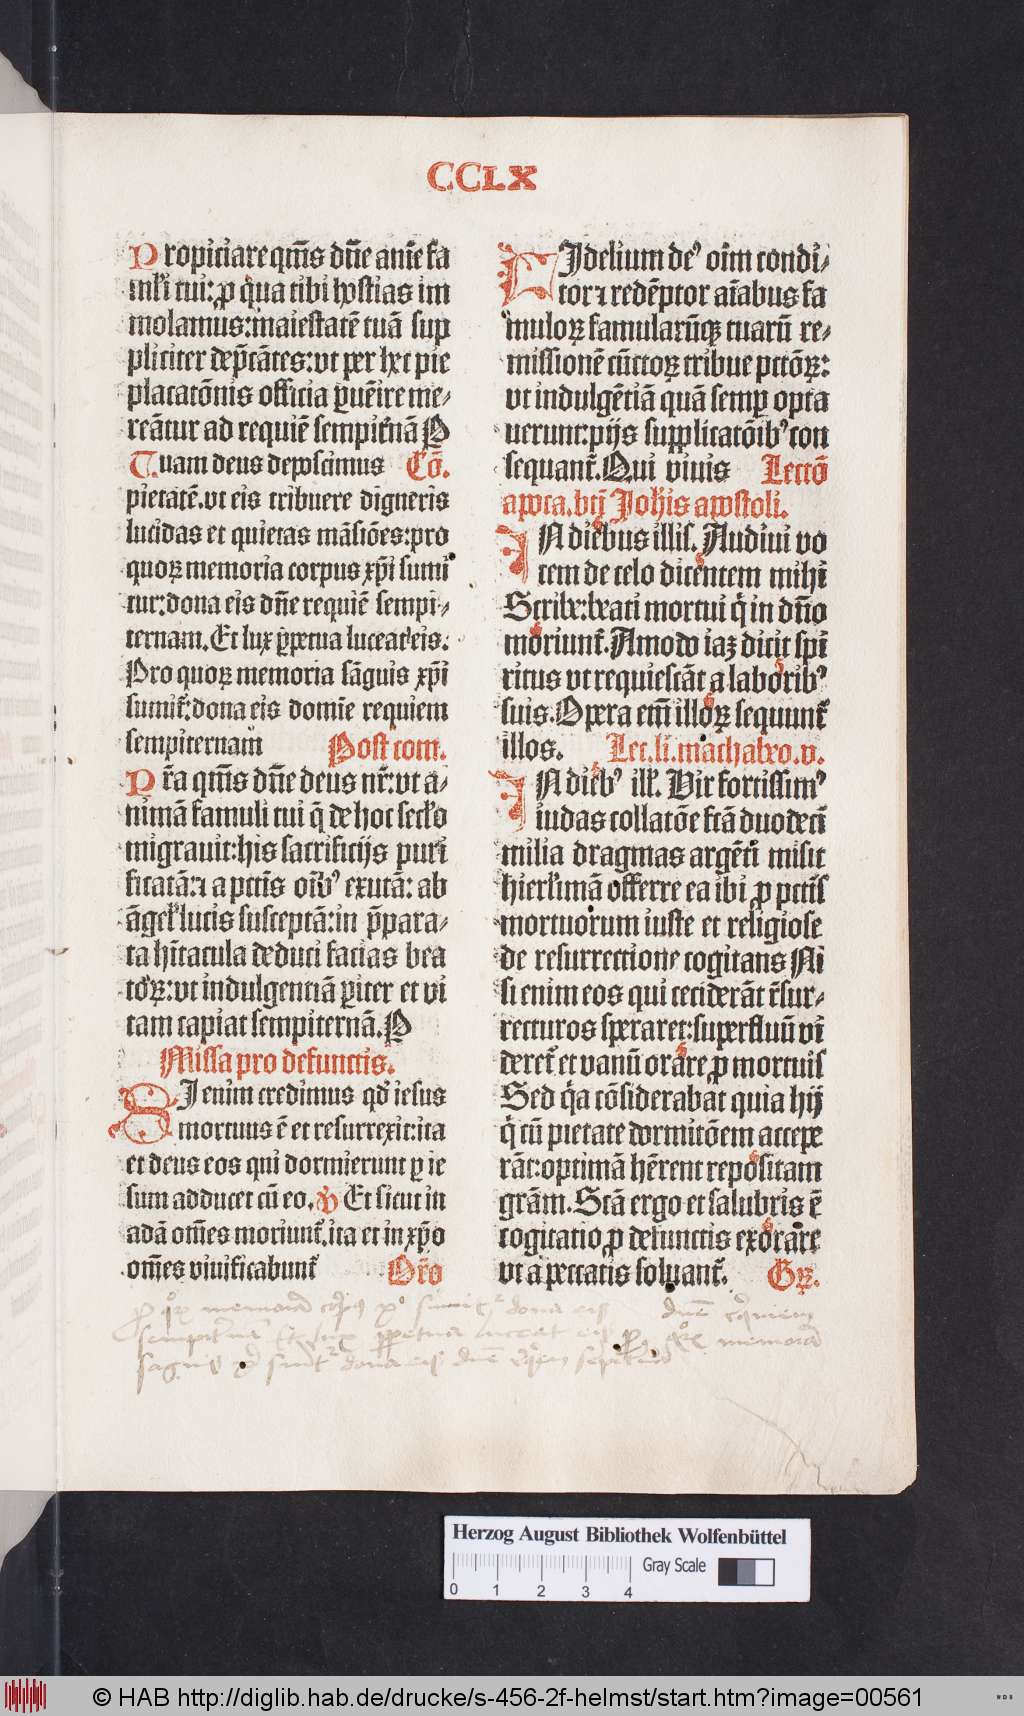 CCLX
Propiciare qm̄s dn̄e anīe fa
ml'i tui: ꝓ qͣ tibi hostias im
molamus: maiestatē tuā sup
pliciter dep̄cātes: vt per hec pie
placatōnis officia ꝑuēire me⸗
reātur ad requiē sempit̄nā P
Tuam deus deposcimus Cō.
pietatē. vt eis tribuere digneris
lucidas et quietas māsiōes: pro
quoꝝ memoria corpus xp̄i sumi
tur: dona eis dn̄e requiē sempi⸗
ternam. Et lux ꝑpetua luceat eis:
Pro quoꝝ memoria sāguis xp̄i
sumit᷑: dona eis domīe requiem
sempiternam Post com.
Pr̄a qm̄s dn̄e deus nr̄: vt a⸗
nimā famuli tui q̄ de hoc secl'o
migrauit: his sacrificijs puri
ficatā: ⁊ a pctīs oīb' exutā: ab
āgel' lucis susceptā: in p̄para⸗
ta hītacula deduci facias bea
toꝝ: vt indulgentiā ꝑiter et vi
tam capiat sempiternā. P
Missa pro defunctis.
SI enim credimus qd' iesus
mortuus ē et resurrexit: ita
et deus eos qui dormierunt ꝑ ie
sum adducet cū eo. ꝟ Et sicut in
adā om̄es moriunt᷑. ita et in xp̄o
om̄es viuificabunt᷑ Or̄o
FIdelium de' oīm condi⸗
tor ⁊ redēptor aīabus fa
muloꝝ famularūqꝫ tuarū re⸗
missionē cūctoꝝ tribue pctōꝝ:
vt indulgētiā quā semꝑ opta
uerunt: pijs supplicatōib' con
sequant᷑. Qui viuis Lectō
apoca. btī Joh̄is apostoli.
IN diebus illis. Audiui vo
cem de celo dicentem mihi
Scribe: beati mortui q̄ in dn̄o
moriunt᷑. Amodo iaꝫ dicit spi
ritus vt requiescāt a laborib'
suis. Opera em̄ illoꝝ sequunt᷑
illos. Lec. li. machabeo. v.
IN dieb' ill'. Vir fortissim'
iudas collatōe fctā duodeci
milia dragmas argēti misit
hierl'imā offerre ea ibi ꝓ pctīs
mortuorum iuste et religiose
de resurrectione cogitans Ni
si enim eos qui ceciderāt r̄sur⸗
recturos speraret: superfluū vi
deret᷑ et vanū orare ꝓ mortuis
Sed qͣ cōsiderabat quia hij
q̄ cū pietate dormitōem accepe
rāt: optimā hērent repositam
gr̄am. Sctā ergo et salubris ē
cogitatio ꝓ defunctis exorare
vt a peccatis soluant᷑. Gꝝ.
memoria dona eis
sempiternā Et lux ꝑpetua luceat eis memoria
sāguis dona eis dn̄e
Herzog August Bibliothek Wolfenbüttel
Gray Scale
0 1 2 3 4
© HAB http://diglib.hab.de/drucke/s-456-2f-helmst/start.htm?image=00561